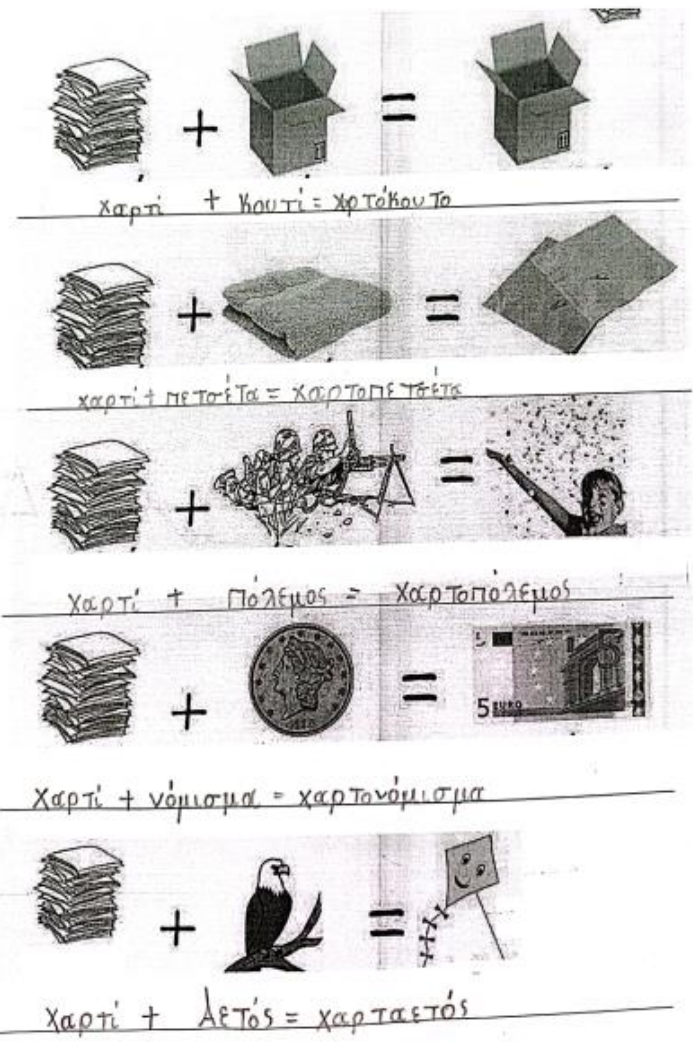 χαρτί + κουτί = χρτόκουτο
χαρτί + πετσέτα = χαρτοπετσέτα
χαρτί + πόλεμος = χαρτοπόλεμος
5 EURO
χαρτί + νόμισμα = χαρτονόμισμα
χαρτί + Αετός = χαρταετός